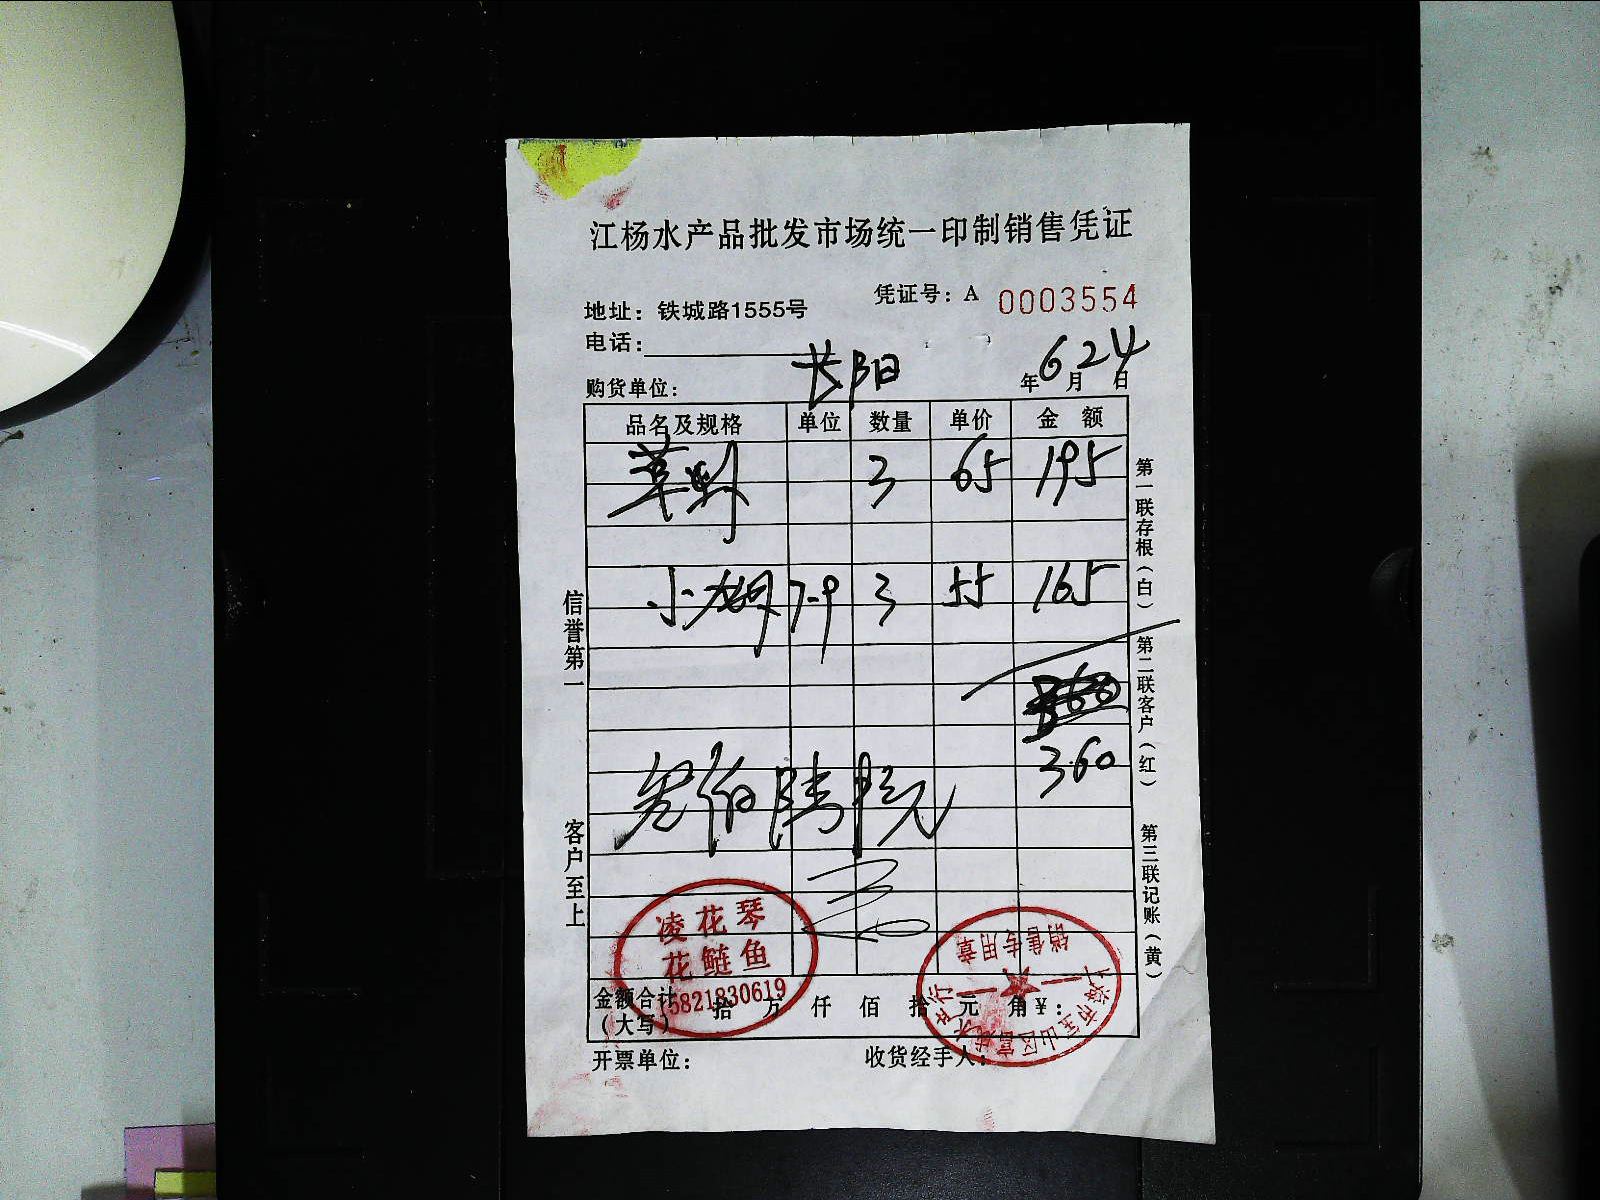 江杨水产品批发市场统一印制销售凭证
凭证号：A 0003554
地址：铁城路1555号
电话：
购货单位： 长阳 年6月24日
品名及规格 单位 数量 单价 金额
草虾 3 65 195
小龙虾 7-9 3 55 165
360
叁佰陆拾元
凌花琴
花鲢鱼
15821830619
销售专用章
金额合计（大写） 拾 万 仟 佰 拾 元 角 ¥：
开票单位： 收货经手人：
信誉第一
客户至上
第一联存根（白）
第二联客户（红）
第三联记账（黄）